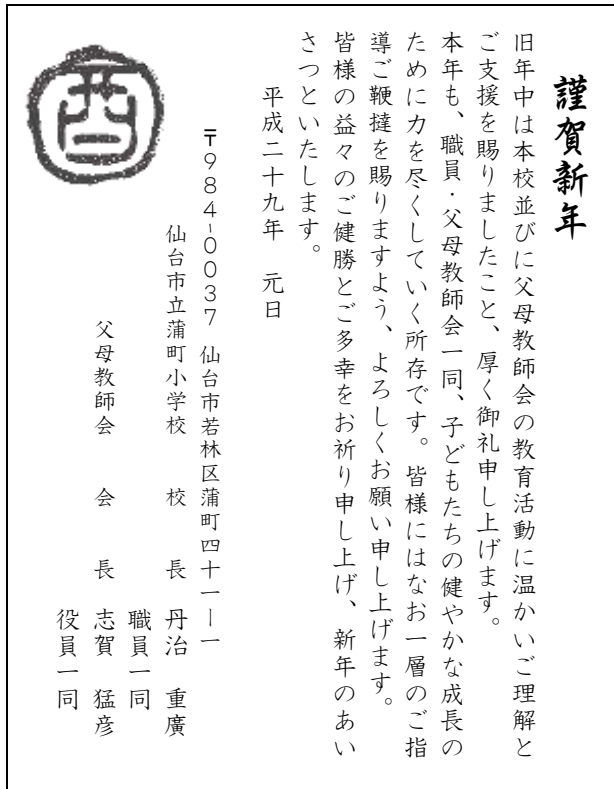 謹賀新年
旧年中は本校並びに父母教師会の教育活動に温かいご理解と
ご支援を賜りましたこと、厚く御礼申し上げます。
本年も、職員・父母教師会一同、子どもたちの健やかな成長の
ために力を尽くしていく所存です。皆様にはなお一層のご指
導ご鞭撻を賜りますよう、よろしくお願い申し上げます。
皆様の益々のご健勝とご多幸をお祈り申し上げ、新年のあい
さつといたします。
平成二十九年　元日
〒984-0037 仙台市若林区蒲町四十一―一
仙台市立蒲町小学校　校　長　丹治　重廣
職員一同
父母教師会　会　長　志賀　猛彦
役員一同
酉